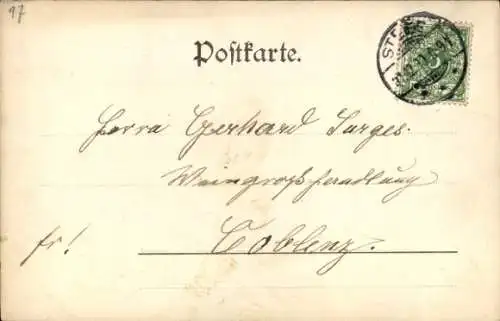 97
Postkarte.
Herrn Gerhard Surges.
Weingrosshandlung
fr! Coblenz.